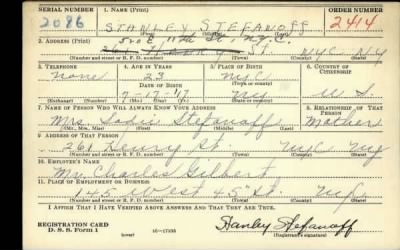 SERIAL NUMBER 1. NAME (Print) ORDER NUMBER
2086 STANLEY STEFANOFF 2414
(First) (Middle) (Last)
2. ADDRESS (Print) 520 E 11th St., N.Y.C.
261 HENRY ST. NYC NY
(Number and street or R. F. D. number) (Town) (County) (State)
3. TELEPHONE 4. AGE IN YEARS 5. PLACE OF BIRTH 6. COUNTRY OF CITIZENSHIP
None 23 NYC
DATE OF BIRTH (Town or county)
7-17-'17 NY U S
(Exchange) (Number) (Mo.) (Day) (Yr.) (State or country)
7. NAME OF PERSON WHO WILL ALWAYS KNOW YOUR ADDRESS 8. RELATIONSHIP OF THAT PERSON
Mrs. Sadie Stefanoff Mother
(Mr., Mrs., Miss) (First) (Middle) (Last)
9. ADDRESS OF THAT PERSON
261 Henry St. NYC NY
(Number and street or R. F. D. number) (Town) (County) (State)
10. EMPLOYER'S NAME
Mr. Charles Gilbert
11. PLACE OF EMPLOYMENT OR BUSINESS
145 West 45" St. NYC
(Number and street or R. F. D. number) (Town) (County) (State)
I AFFIRM THAT I HAVE VERIFIED ABOVE ANSWERS AND THAT THEY ARE TRUE.
REGISTRATION CARD
D. S. S. Form 1 16—17105 Stanley Stefanoff
(Registrant's signature)